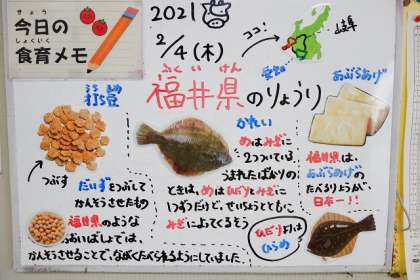 きょう
今日の
しょくいく
食育メモ
2021
2/4(木)
ココ!
岐阜
愛知
ふくいけん
福井県のりょうり
うち豆
打ち豆
つぶす
だいずをつぶして
かんそうさせたもの
福井県のような
さむいばしょでは、
かんそうさせることで、ながくたべられるようにしていました。
かれい
めはみぎに
2つついている。
うまれたばかりの
ときは、めはひだりとみぎに
1つずつだけど、せいちょうとともに
みぎによってくるそう
あぶらあげ
福井県は、
あぶらあげの
たべるりょうが、
日本一!!
ひだりによるのは
ひらめ